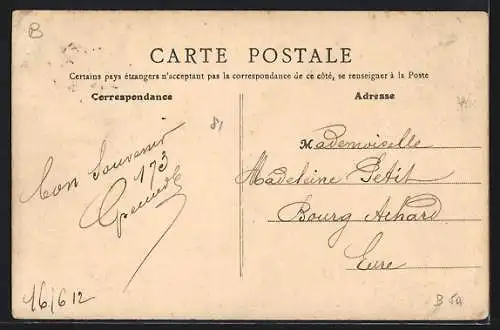 B
CARTE POSTALE
Certains pays étrangers n'acceptant pas la correspondance de ce côté, se renseigner à la Poste
Correspondance
Adresse
81
Bon Souvenir
173
Mademoiselle
Madeleine Petit
Bourg Achard
Eure
16/6 12
B 50